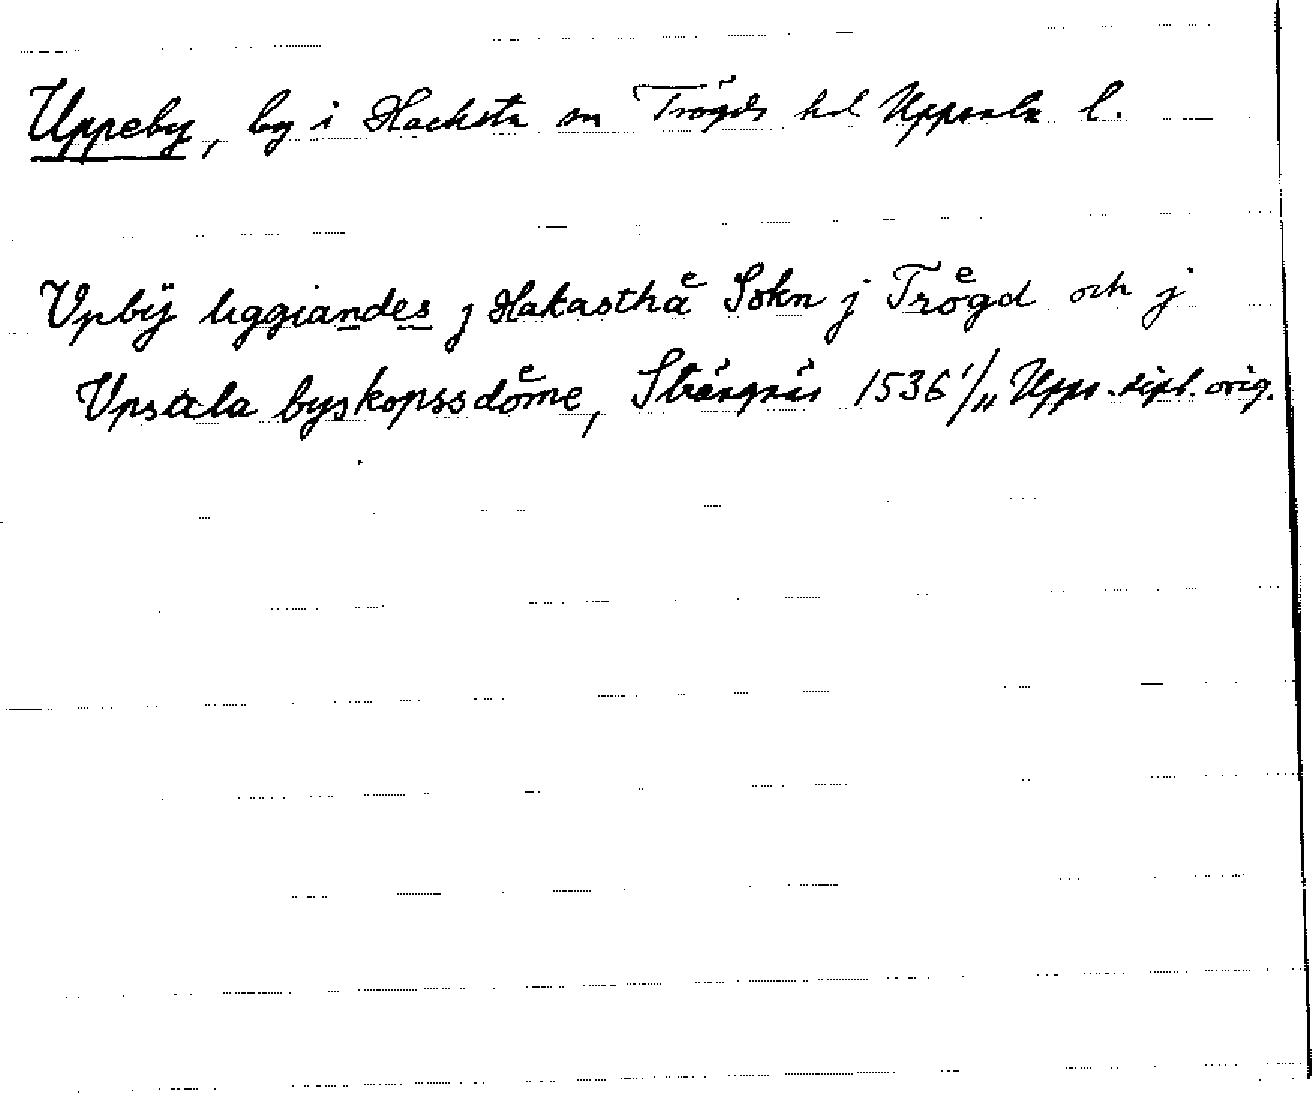 Uppeby, by i Hacksta sn Trögds hd Uppsala l.
Vpbÿ liggiandes j Hakasthaͤ Sokn j Troͤgd och j
Vpsala byskopssdoͤme, Strängnäs 1536 1/11 Upps. dipl. orig.